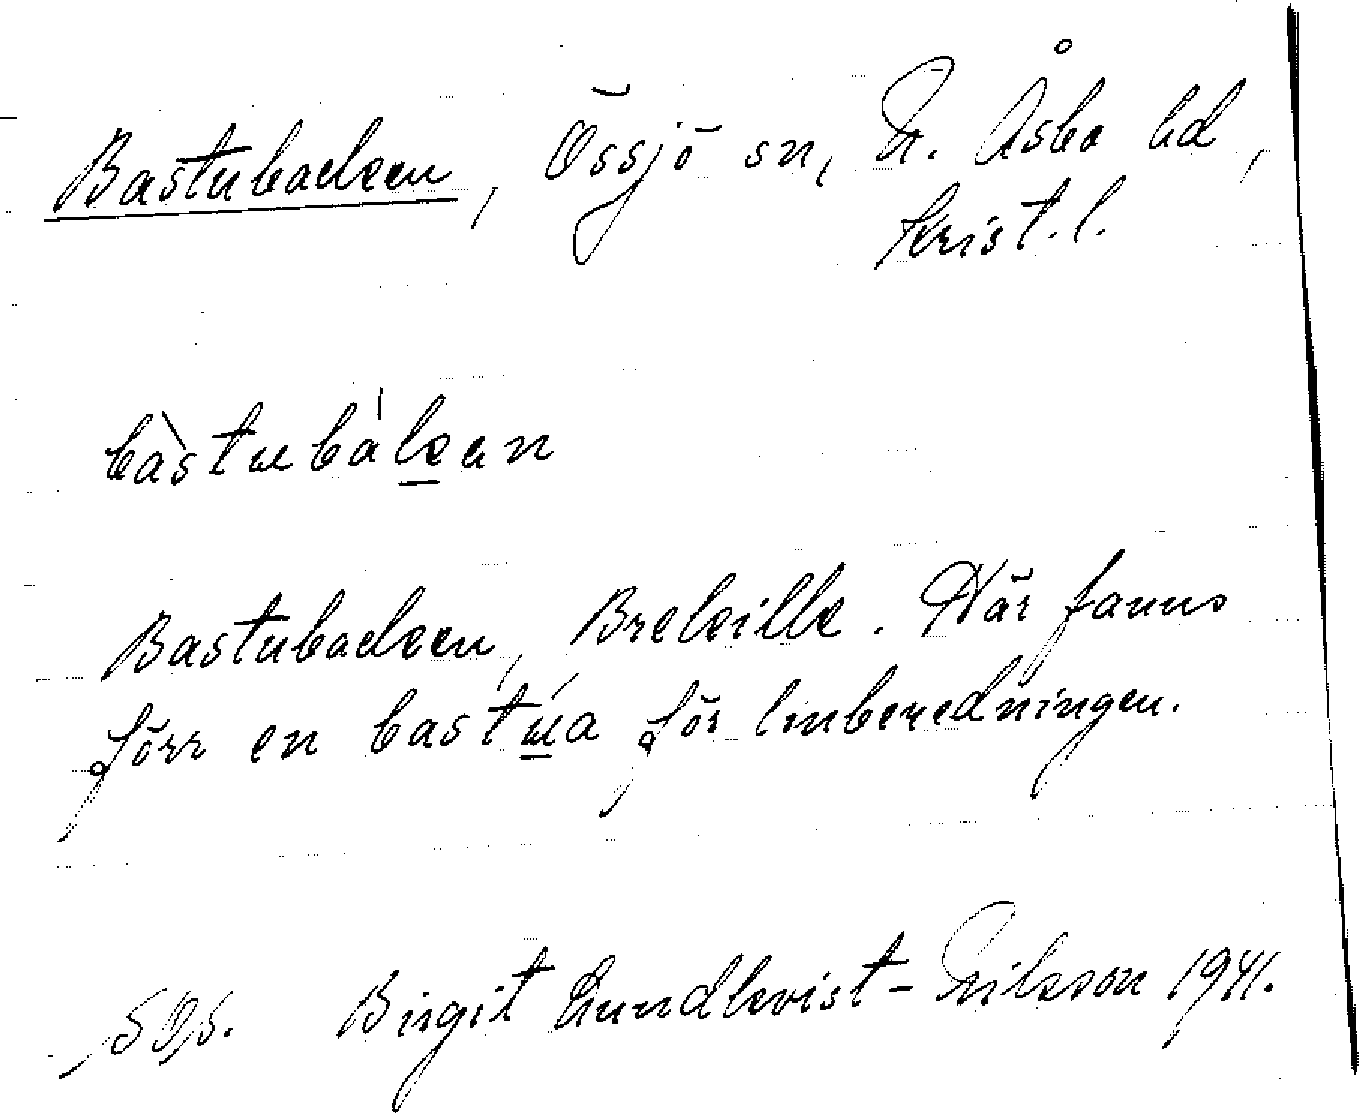 Bastubacken, Össjö sn, N. Åsbo hd,
Krist. l.
bàstubákan
Bastubacken, Brekille. Där fanns
förr en bastúa för linberedningen.
Birgit Lundkvist-Nilsson 1941.